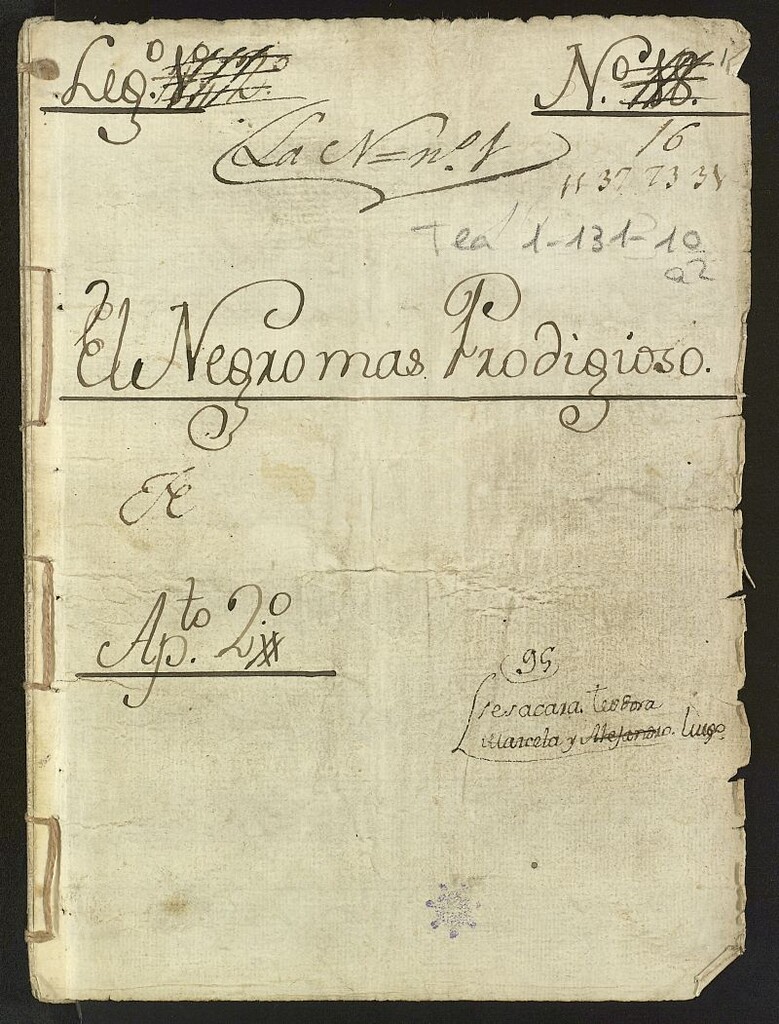 Leg.º
N.º
La N=nº 1
16
11 37 73 31
Tea 1-131-10
a2
El Negro mas Prodigioso.
Ap.to 2.º
95
se sacara. Teodora
Marcela y Alejandro. Lugo